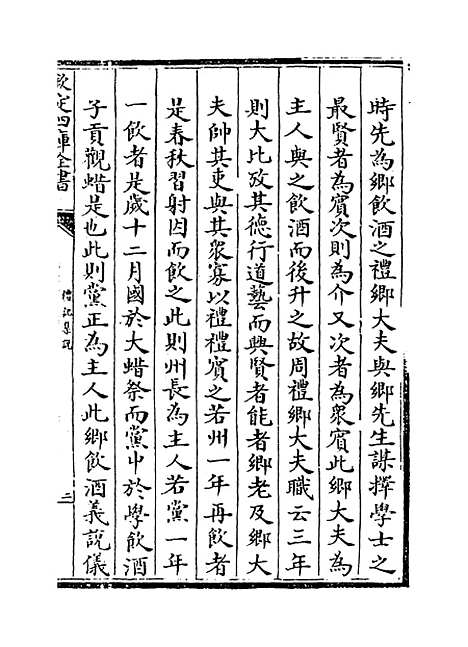 時先為鄉飲酒之禮鄉大夫與鄉先生謀擇學士之
最賢者為賓次則為介又次者為衆賓此鄉大夫為
主人與之飲酒而後升之故周禮鄉大夫職云三年
則大比攷其德行道藝而興賢者能者鄉老及鄉大
夫帥其吏與其衆寡以禮禮賓之若州一年再飲者
是春秋習射因而飲之此則州長為主人若黨一年
一飲者是歲十二月國於大蜡祭而黨中於學飲酒
子貢觀蜡是也此則黨正為主人此鄉飲酒義說儀
欽定四庫全書
禮記集說
三